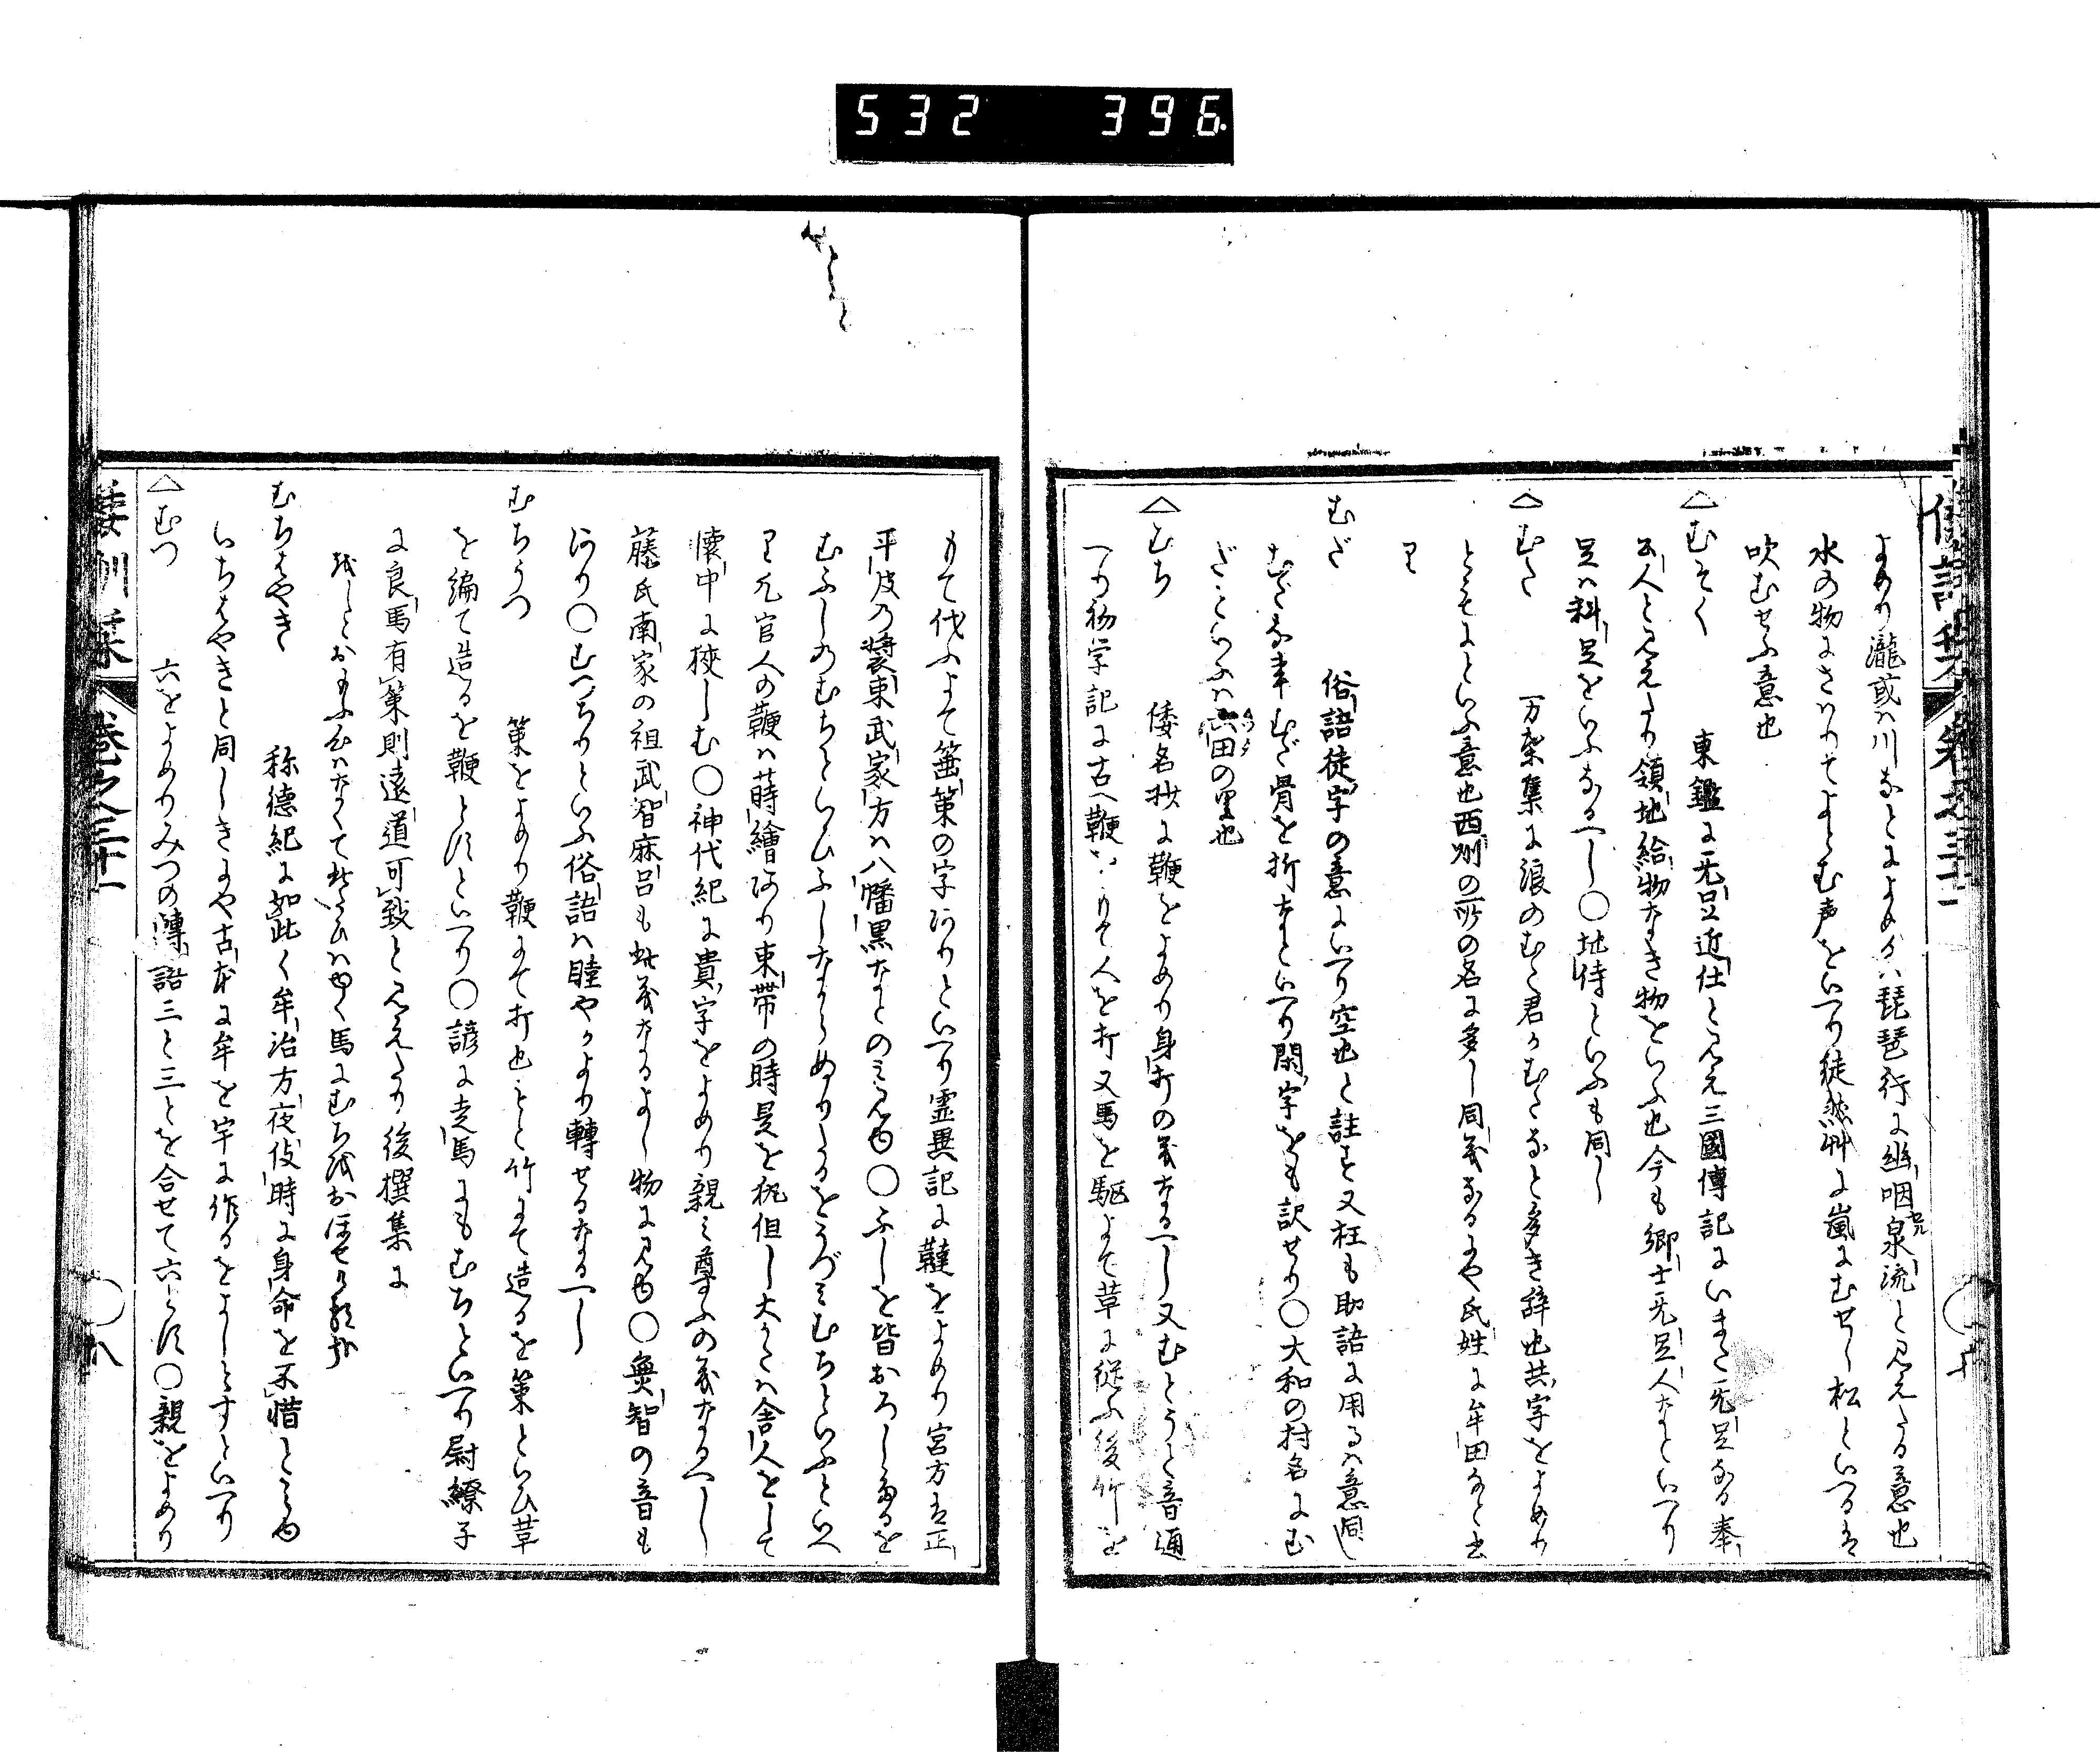 532 396
よめり瀧或ハ川なとによめるハ琵琶行に幽咽泉流と見えたる意也
水の物にさはりてよとむ声をいへり徒然艸に嵐にむせし松といへるは
吹むせふ意也
△むそく 東鑑に无足近仕と見え三國傳記にいまた无足なる奉
公人と見えたり領地給物なき物をいふ也今も郷士无足人なといへり
足ハ料足をいふなるへし○地侍といふも同し
△むた 万葉集に浪のむた君かむたなと多き辞也共字をよめり
ともにといふ意也西州の所の名に多し同義なるにや氏姓に牟田なと出
り
むだ 俗語徒字の意にいへり空也と註す又枉も助語に用るハ意同し
むだな事むだ骨を折なといへり閑字をも訳せり○大和の村名にむ
だといふハ六田の里也
△むち 倭名抄に鞭をよめり身打の義なるへし又むとうと音通
へり初学記に古ヘ鞭ハもて人を打又馬を駆よて革に従ふ後竹を
もて代ふよて箠策の字ありといへり霊異記に韃をよめり宮方は正
平皮の装束武家方ハ八幡黒なとのミ見ゆ○ふしを皆おろしたるを
むふしのむちといひふしなからぬりたるをうづミむちといふといへ
り凡官人の鞭ハ蒔繪あり東帯の時是を執但し大かたハ舎人をして
懐中に挾しむ○神代紀に貴字をよめり親ミ尊ふの義なるへし
藤氏南家の祖武智麻呂も此義なるよし物に見ゆ○無智の音も
あり○むつちりといふ俗語ハ睦やかより轉せるなるへし
むちうつ 策をよめり鞭にて打也もと竹にて造るを策といひ革
を編て造るを鞭とすといへり○諺に走馬にもむちといへり尉繚子
に良馬有策則遠道可致と見えたり後撰集に
をしとおもふ心ハなくて此たひハゆく馬にむちをおほせつる哉
むちはやき 称徳紀に如此久牟治方夜伎時に身命を不惜と見ゆ
いちはやきと同しきにや古本に牟を宇に作るをよしとすといへり
△むつ 六をよめりみつの轉語三と三とを合せて六とす○親をよめり
倭訓栞 巻之三十一
八